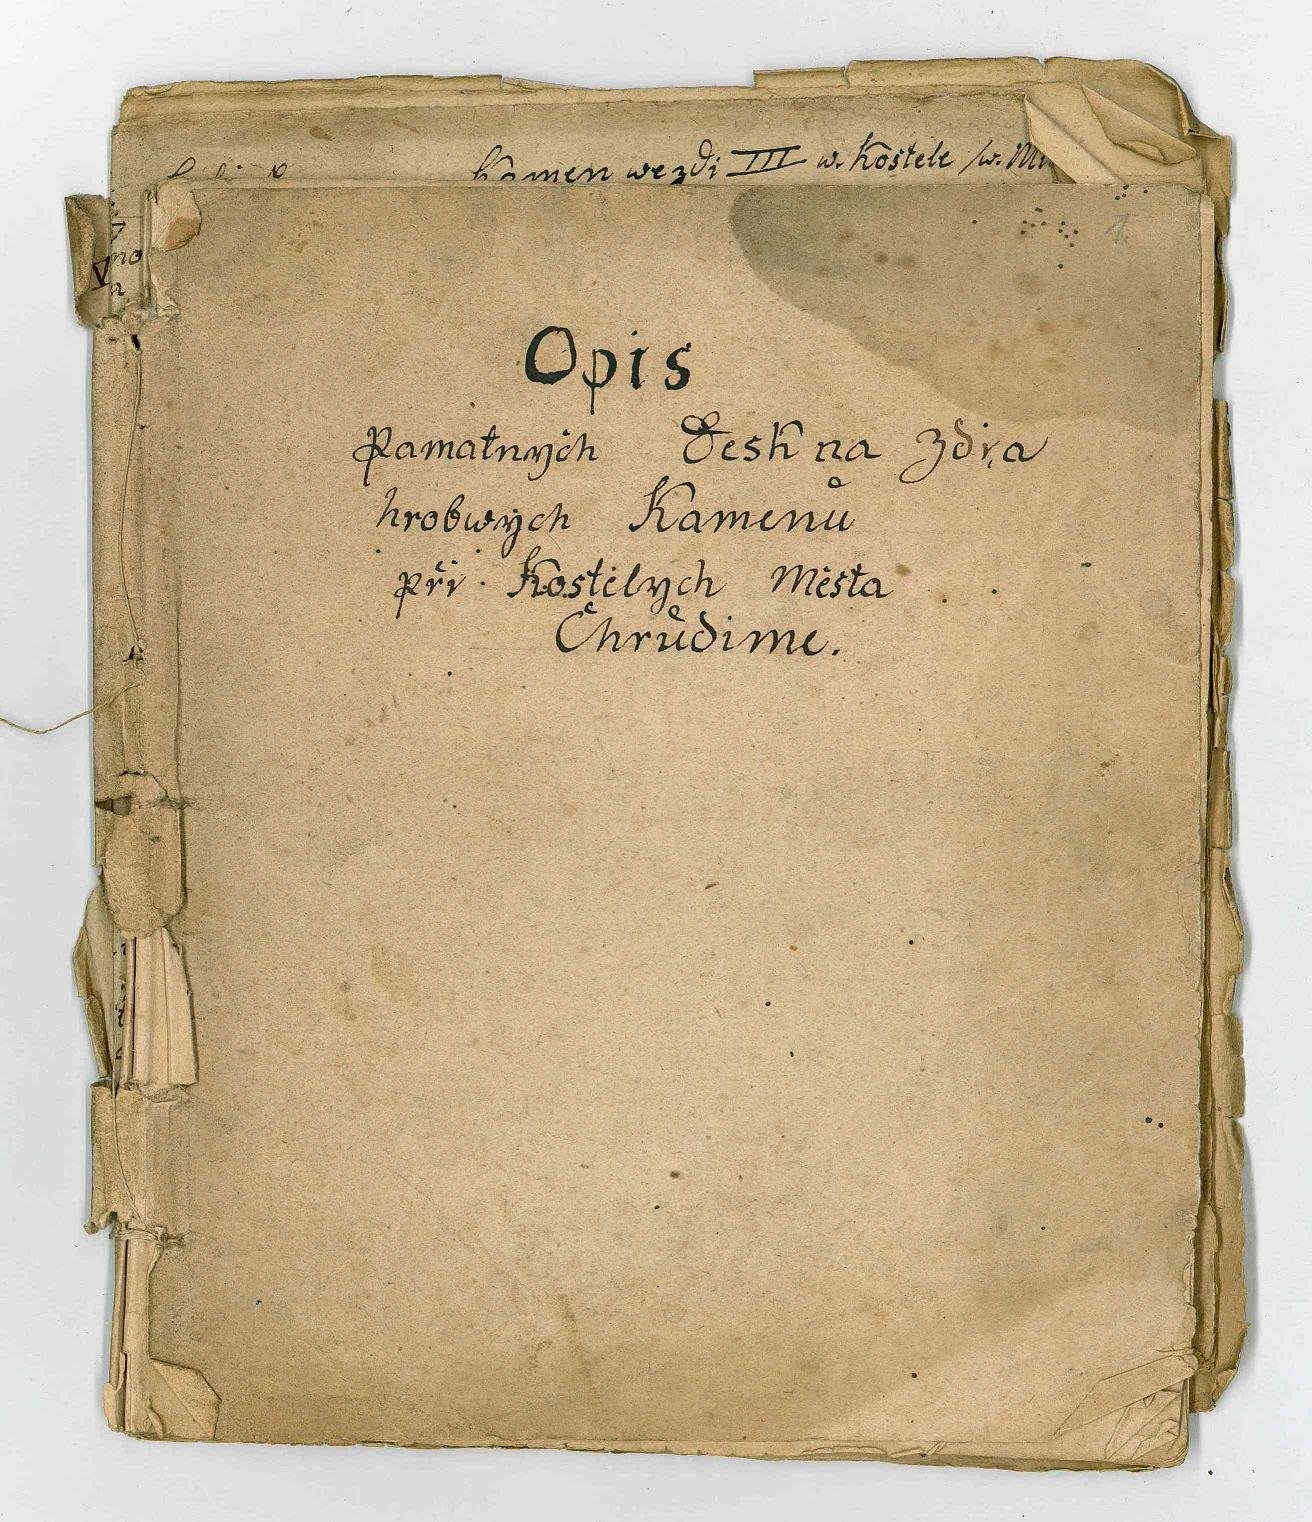 Kamen wezdi III w. Kostele
no
Opis
Pamatnych Desk na
hrobwych Kamenů
při Kostelych Města
Chrůdime.